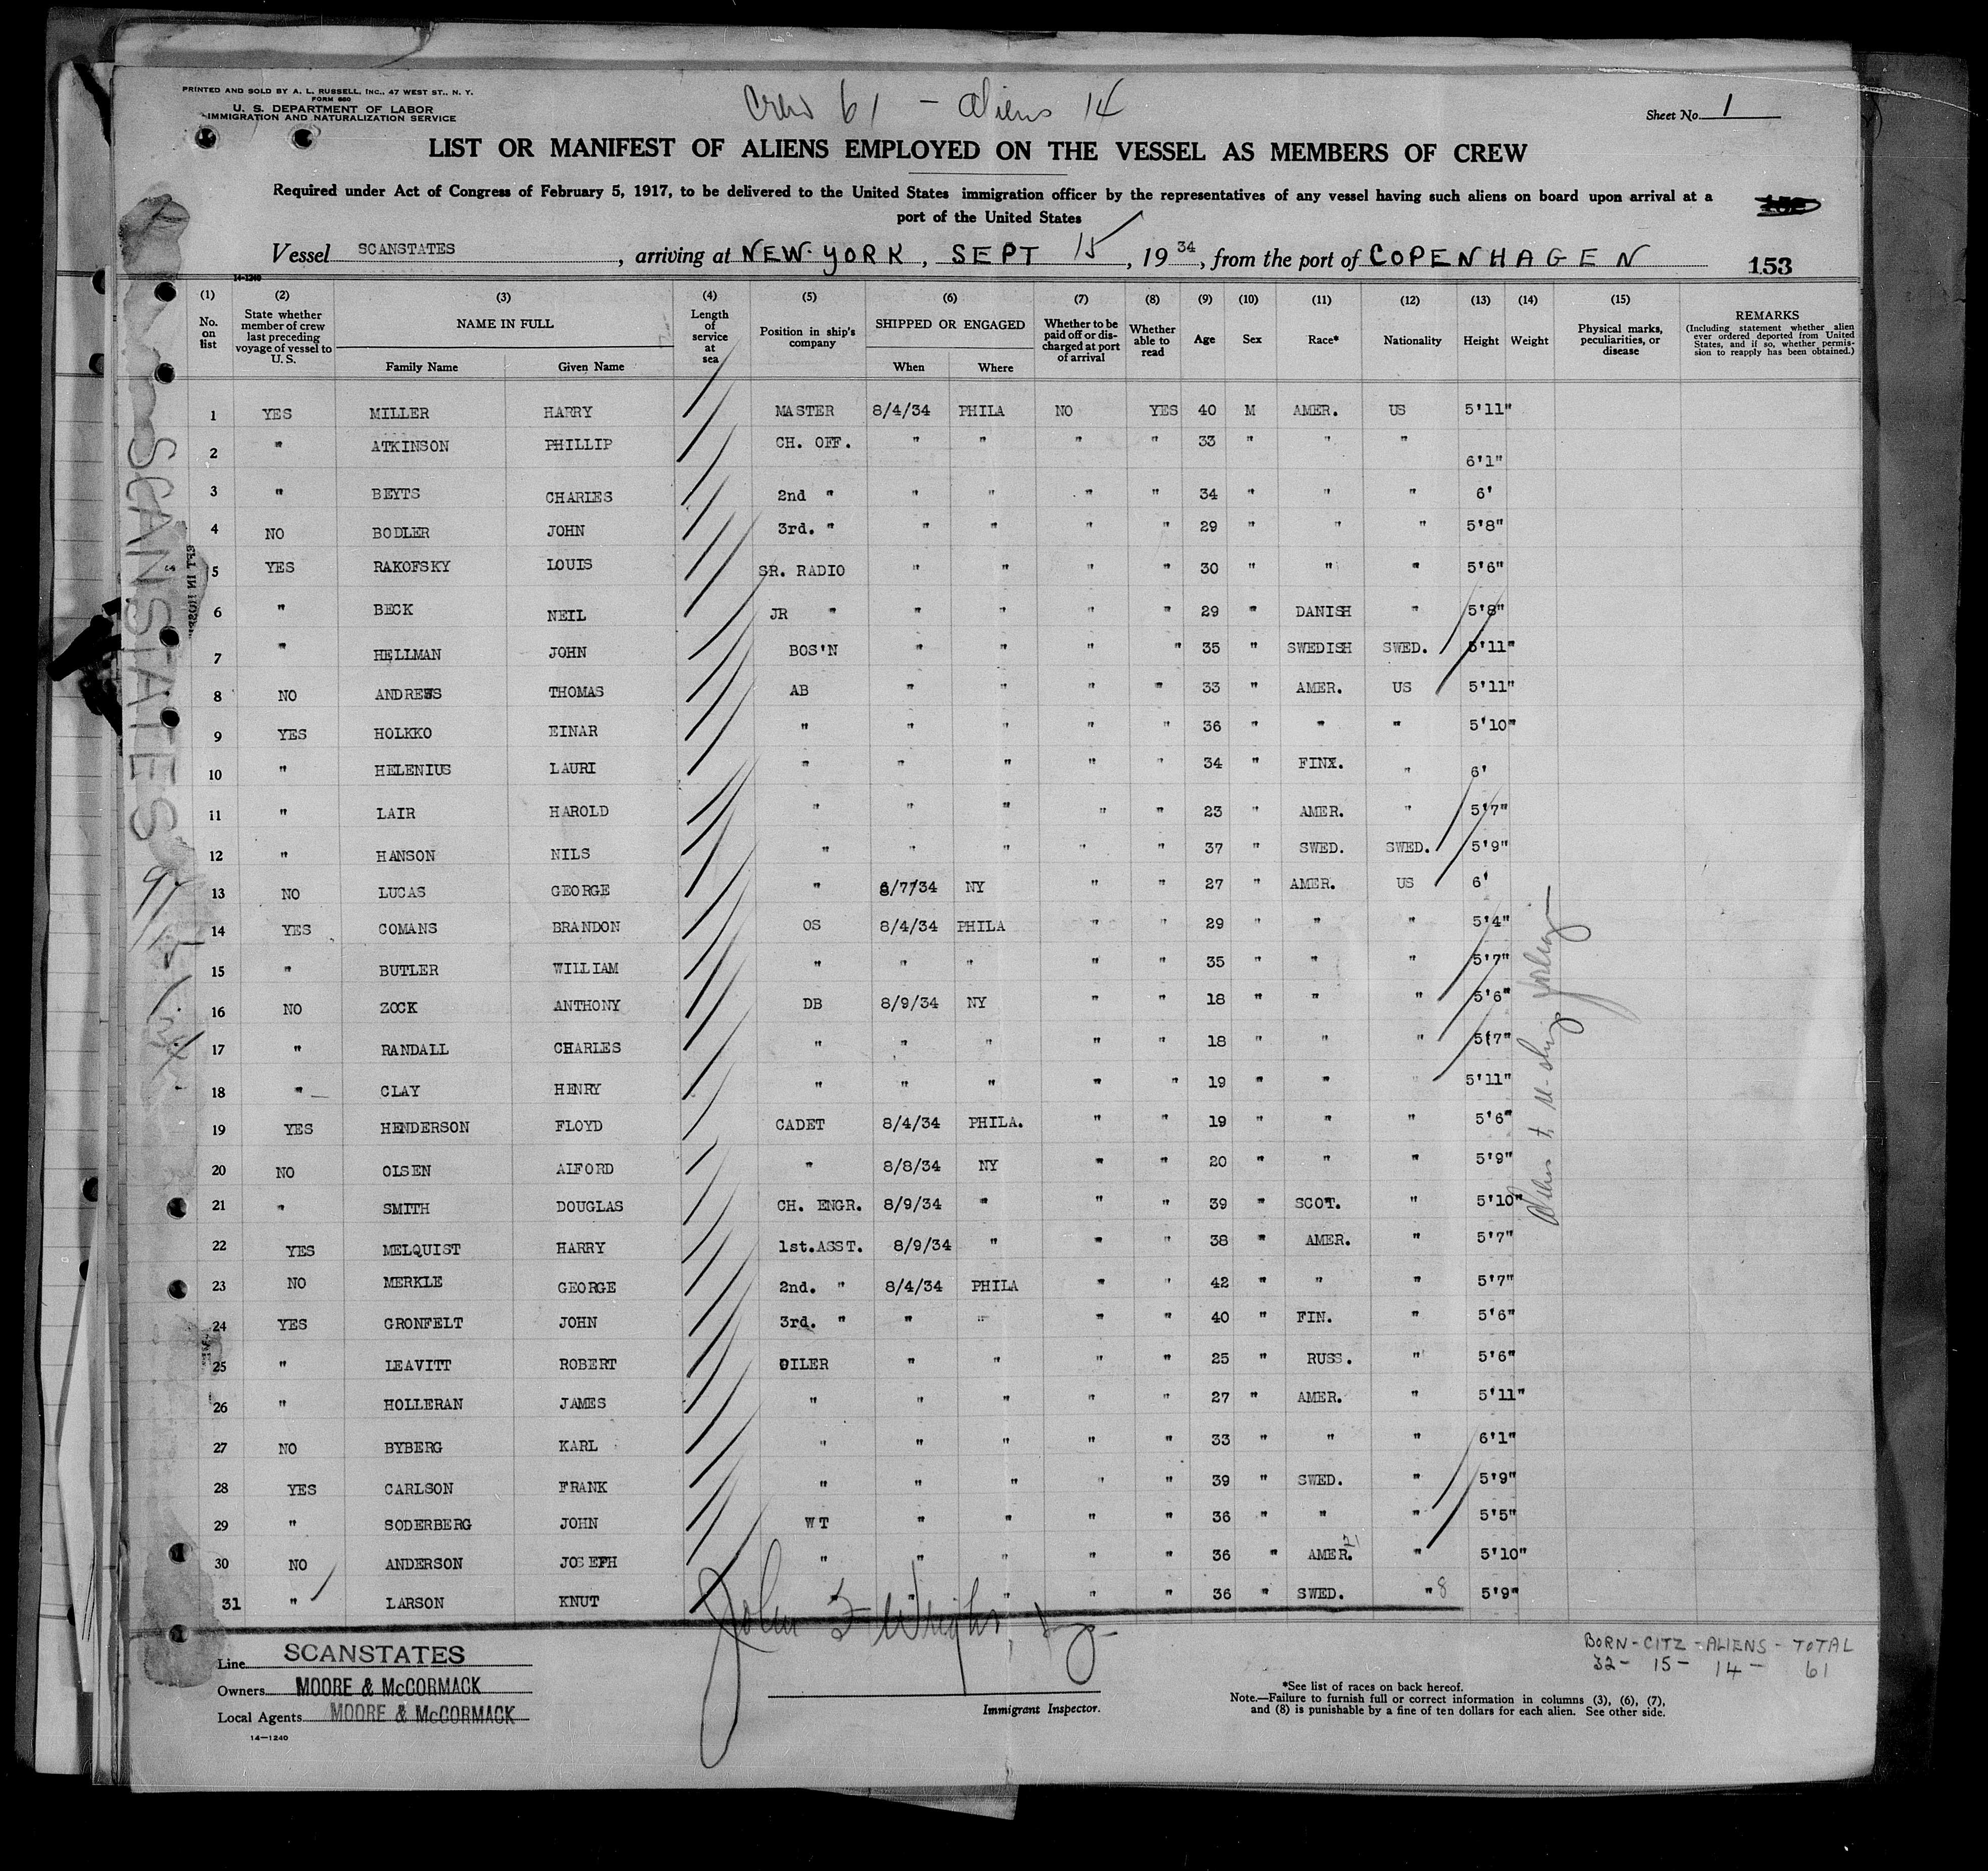 PRINTED AND SOLD BY A. L. RUSSELL, INC., 47 WEST ST., N. Y.
FORM 680
U. S. DEPARTMENT OF LABOR
IMMIGRATION AND NATURALIZATION SERVICE
Crew 61 - Aliens 14
Sheet No. 1
LIST OR MANIFEST OF ALIENS EMPLOYED ON THE VESSEL AS MEMBERS OF CREW
Required under Act of Congress of February 5, 1917, to be delivered to the United States immigration officer by the representatives of any vessel having such aliens on board upon arrival at a
port of the United States
Vessel SCANSTATES, arriving at NEW YORK, SEPT 15, 1934, from the port of COPENHAGEN
153
14-1240
(1) (2) (3) (4) (5) (6) (7) (8) (9) (10) (11) (12) (13) (14) (15)
No. on list
State whether member of crew last preceding voyage of vessel to U. S.
NAME IN FULL
Family Name Given Name
Length of service at sea
Position in ship's company
SHIPPED OR ENGAGED
When Where
Whether to be paid off or discharged at port of arrival
Whether able to read
Age Sex Race* Nationality Height Weight
Physical marks, peculiarities, or disease
REMARKS
(Including statement whether alien ever ordered deported from United States, and if so, whether permission to reapply has been obtained.)
1 YES MILLER HARRY MASTER 8/4/34 PHILA NO YES 40 M AMER. US 5'11"
2 " ATKINSON PHILLIP CH. OFF. " " " " 33 " " " 6'1"
3 " BEYTS CHARLES 2nd " " " " " 34 " " " 6'
4 NO BODLER JOHN 3rd. " " " " " 29 " " " 5'8"
5 YES RAKOFSKY LOUIS SR. RADIO " " " " 30 " " " 5'6"
6 " BECK NEIL JR " " " " " 29 " DANISH " 5'8"
7 " HELLMAN JOHN BOS'N " " " " 35 " SWEDISH SWED. 5'11"
8 NO ANDREWS THOMAS AB " " " " 33 " AMER. US 5'11"
9 YES HOLKKO EINAR " " " " " 36 " " " 5'10"
10 " HELENIUS LAURI " " " " " 34 " FINX. " 6'
11 " LAIR HAROLD " " " " " 23 " AMER. " 5'7"
12 " HANSON NILS " " " " " 37 " SWED. SWED. 5'9"
13 NO LUCAS GEORGE " 8/7/34 NY " " 27 " AMER. US 6'
14 YES COMANS BRANDON OS 8/4/34 PHILA " " 29 " " " 5'4"
15 " BUTLER WILLIAM " " " " " 35 " " " 5'7"
16 NO ZOCK ANTHONY DB 8/9/34 NY " " 18 " " " 5'6"
17 " RANDALL CHARLES " " " " " 18 " " " 5'7"
18 " CLAY HENRY " " " " " 19 " " " 5'11"
19 YES HENDERSON FLOYD CADET 8/4/34 PHILA. " " 19 " " " 5'6"
20 NO OLSEN ALFORD " 8/8/34 NY " " 20 " " " 5'9"
21 " SMITH DOUGLAS CH. ENGR. 8/9/34 " " " 39 " SCOT. " 5'10"
22 YES MELQUIST HARRY 1st.ASST. 8/9/34 " " " 38 " AMER. " 5'7"
23 NO MERKLE GEORGE 2nd. " 8/4/34 PHILA " " 42 " " " 5'7"
24 YES GRONFELT JOHN 3rd. " " " " " 40 " FIN. " 5'6"
25 " LEAVITT ROBERT OILER " " " " 25 " RUSS. " 5'6"
26 " HOLLERAN JAMES " " " " " 27 " AMER. " 5'11"
27 NO BYBERG KARL " " " " " 33 " " " 6'1"
28 YES CARLSON FRANK " " " " " 39 " SWED. " 5'9"
29 " SODERBERG JOHN WT " " " " 36 " " " 5'5"
30 NO ANDERSON JOSEPH " " " " " 36 " AMER. 21 " 5'10"
31 " LARSON KNUT " " " " 36 " SWED. " 8 5'9"
SCANSTATES
John F Wright
Line SCANSTATES
Owners MOORE & McCORMACK
Local Agents MOORE & McCORMACK
14-1240
Immigrant Inspector.
BORN - CITZ - ALIENS - TOTAL
32 - 15 - 14 - 61
*See list of races on back hereof.
Note.—Failure to furnish full or correct information in columns (3), (6), (7),
and (8) is punishable by a fine of ten dollars for each alien. See other side.